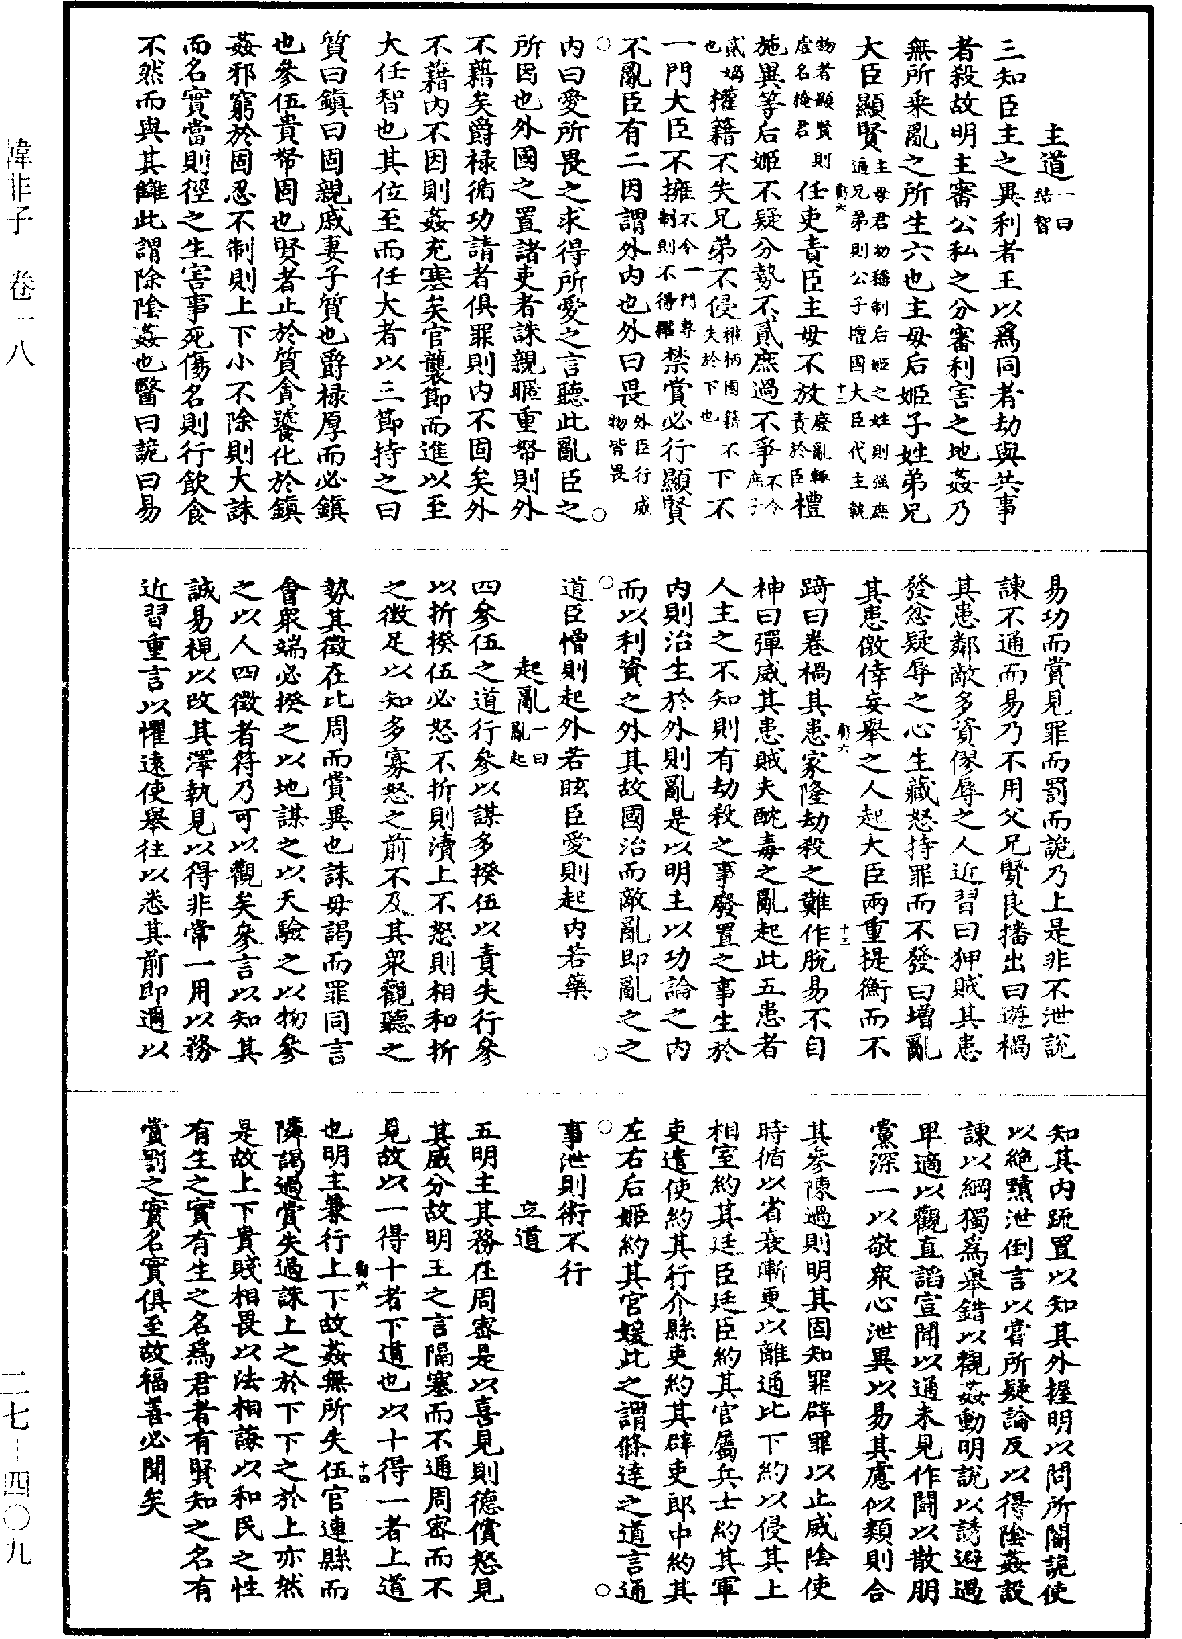 主道一曰結智
三知臣主之異利者王以爲同者劫與共事
者殺故明主審公私之分審利害之地姦乃
無所乘亂之所生六也主母后姬子姓弟兄
大臣顯賢主母君幼稱制后姬之姓則強庶逼兄弟則公子擅國大臣代主執
物者顯賢則虛名掩君任吏責臣主母不放廢亂輒責於臣禮
施異等后姬不疑分勢不貳庶適不爭不令庶子
貳嫡也權籍不失兄弟不侵權柄國籍不失於下也下不
一門大臣不擁不令一門專制則不得擁禁賞必行顯賢
不亂臣有二因謂外内也外曰畏外臣行威物皆畏
内曰愛所畏之求得所愛之言聽此亂臣之
所因也外國之置諸吏者誅親暱重帑則外
不藉矣爵祿循功請者俱罪則内不因矣外
不藉内不因則姦充塞矣官襲節而進以至
大任智也其位至而任大者以三節持之曰
質曰鎮曰固親戚妻子質也爵祿厚而必鎮
也參伍貴帑固也賢者止於質貪饕化於鎮
姦邪窮於固忍不制則上下小不除則大誅
而名實當則徑之生害事死傷名則行飲食
不然而與其讎此謂除陰姦也醫曰詭曰易
易功而賞見罪而罰而詭乃上是非不泄說
諫不通而易乃不用父兄賢良播出曰遊禍
其患鄰敵多資僇辱之人近習曰狎賊其患
發忿疑辱之心生藏怒持罪而不發曰增亂
其患儌倖妄舉之人起大臣兩重提衡而不
踦曰卷禍其患家隆劫殺之難作脫易不自
神曰彈威其患賊夫酖毒之亂起此五患者
人主之不知則有劫殺之事廢置之事生於
内則治生於外則亂是以明主以功論之内
而以利資之外其故國治而敵亂即亂之之
道臣憎則起外若眩臣愛則起内若藥
起亂一曰亂起
四參伍之道行參以謀多揆伍以責失行參
以折揆伍必怒不折則瀆上不怒則相和折
之徵足以知多寡怒之前不及其衆觀聽之
勢其徵在比周而賞異也誅毋謁而罪同言
會衆端必揆之以地謀之以天驗之以物參
之以人四徵者符乃可以觀矣參言以知其
誠易視以改其澤執見以得非常一用以務
近習重言以懼遠使舉往以悉其前即邇以
知其内疏置以知其外握明以問所闇詭使
以絶黷泄倒言以嘗所疑論反以得陰姦設
諫以綱獨爲舉錯以觀姦動明說以誘避過
卑適以觀直諂宣聞以通未見作鬪以散朋
黨深一以敬衆心泄異以易其慮似類則合
其參陳過則明其固知罪辟罪以止威陰使
時循以省衰漸更以離通比下約以侵其上
相室約其廷臣廷臣約其官屬兵士約其軍
吏遣使約其行介縣吏約其辟吏郎中約其
左右后姬約其官媛此之謂條達之道言通
事泄則術不行
立道
五明主其務在周密是以喜見則德償怒見
其威分故明王之言隔塞而不通周密而不
見故以一得十者下道也以十得一者上道
也明主兼行上下故姦無所失伍官連縣而
隣謁過賞失過誅上之於下下之於上亦然
是故上下貴賤相畏以法相誨以和民之性
有生之實有生之名爲君者有賢知之名有
賞罰之實名實俱至故福善必聞矣
十二
十三
十四
韓非子　卷一八
二七-四〇九